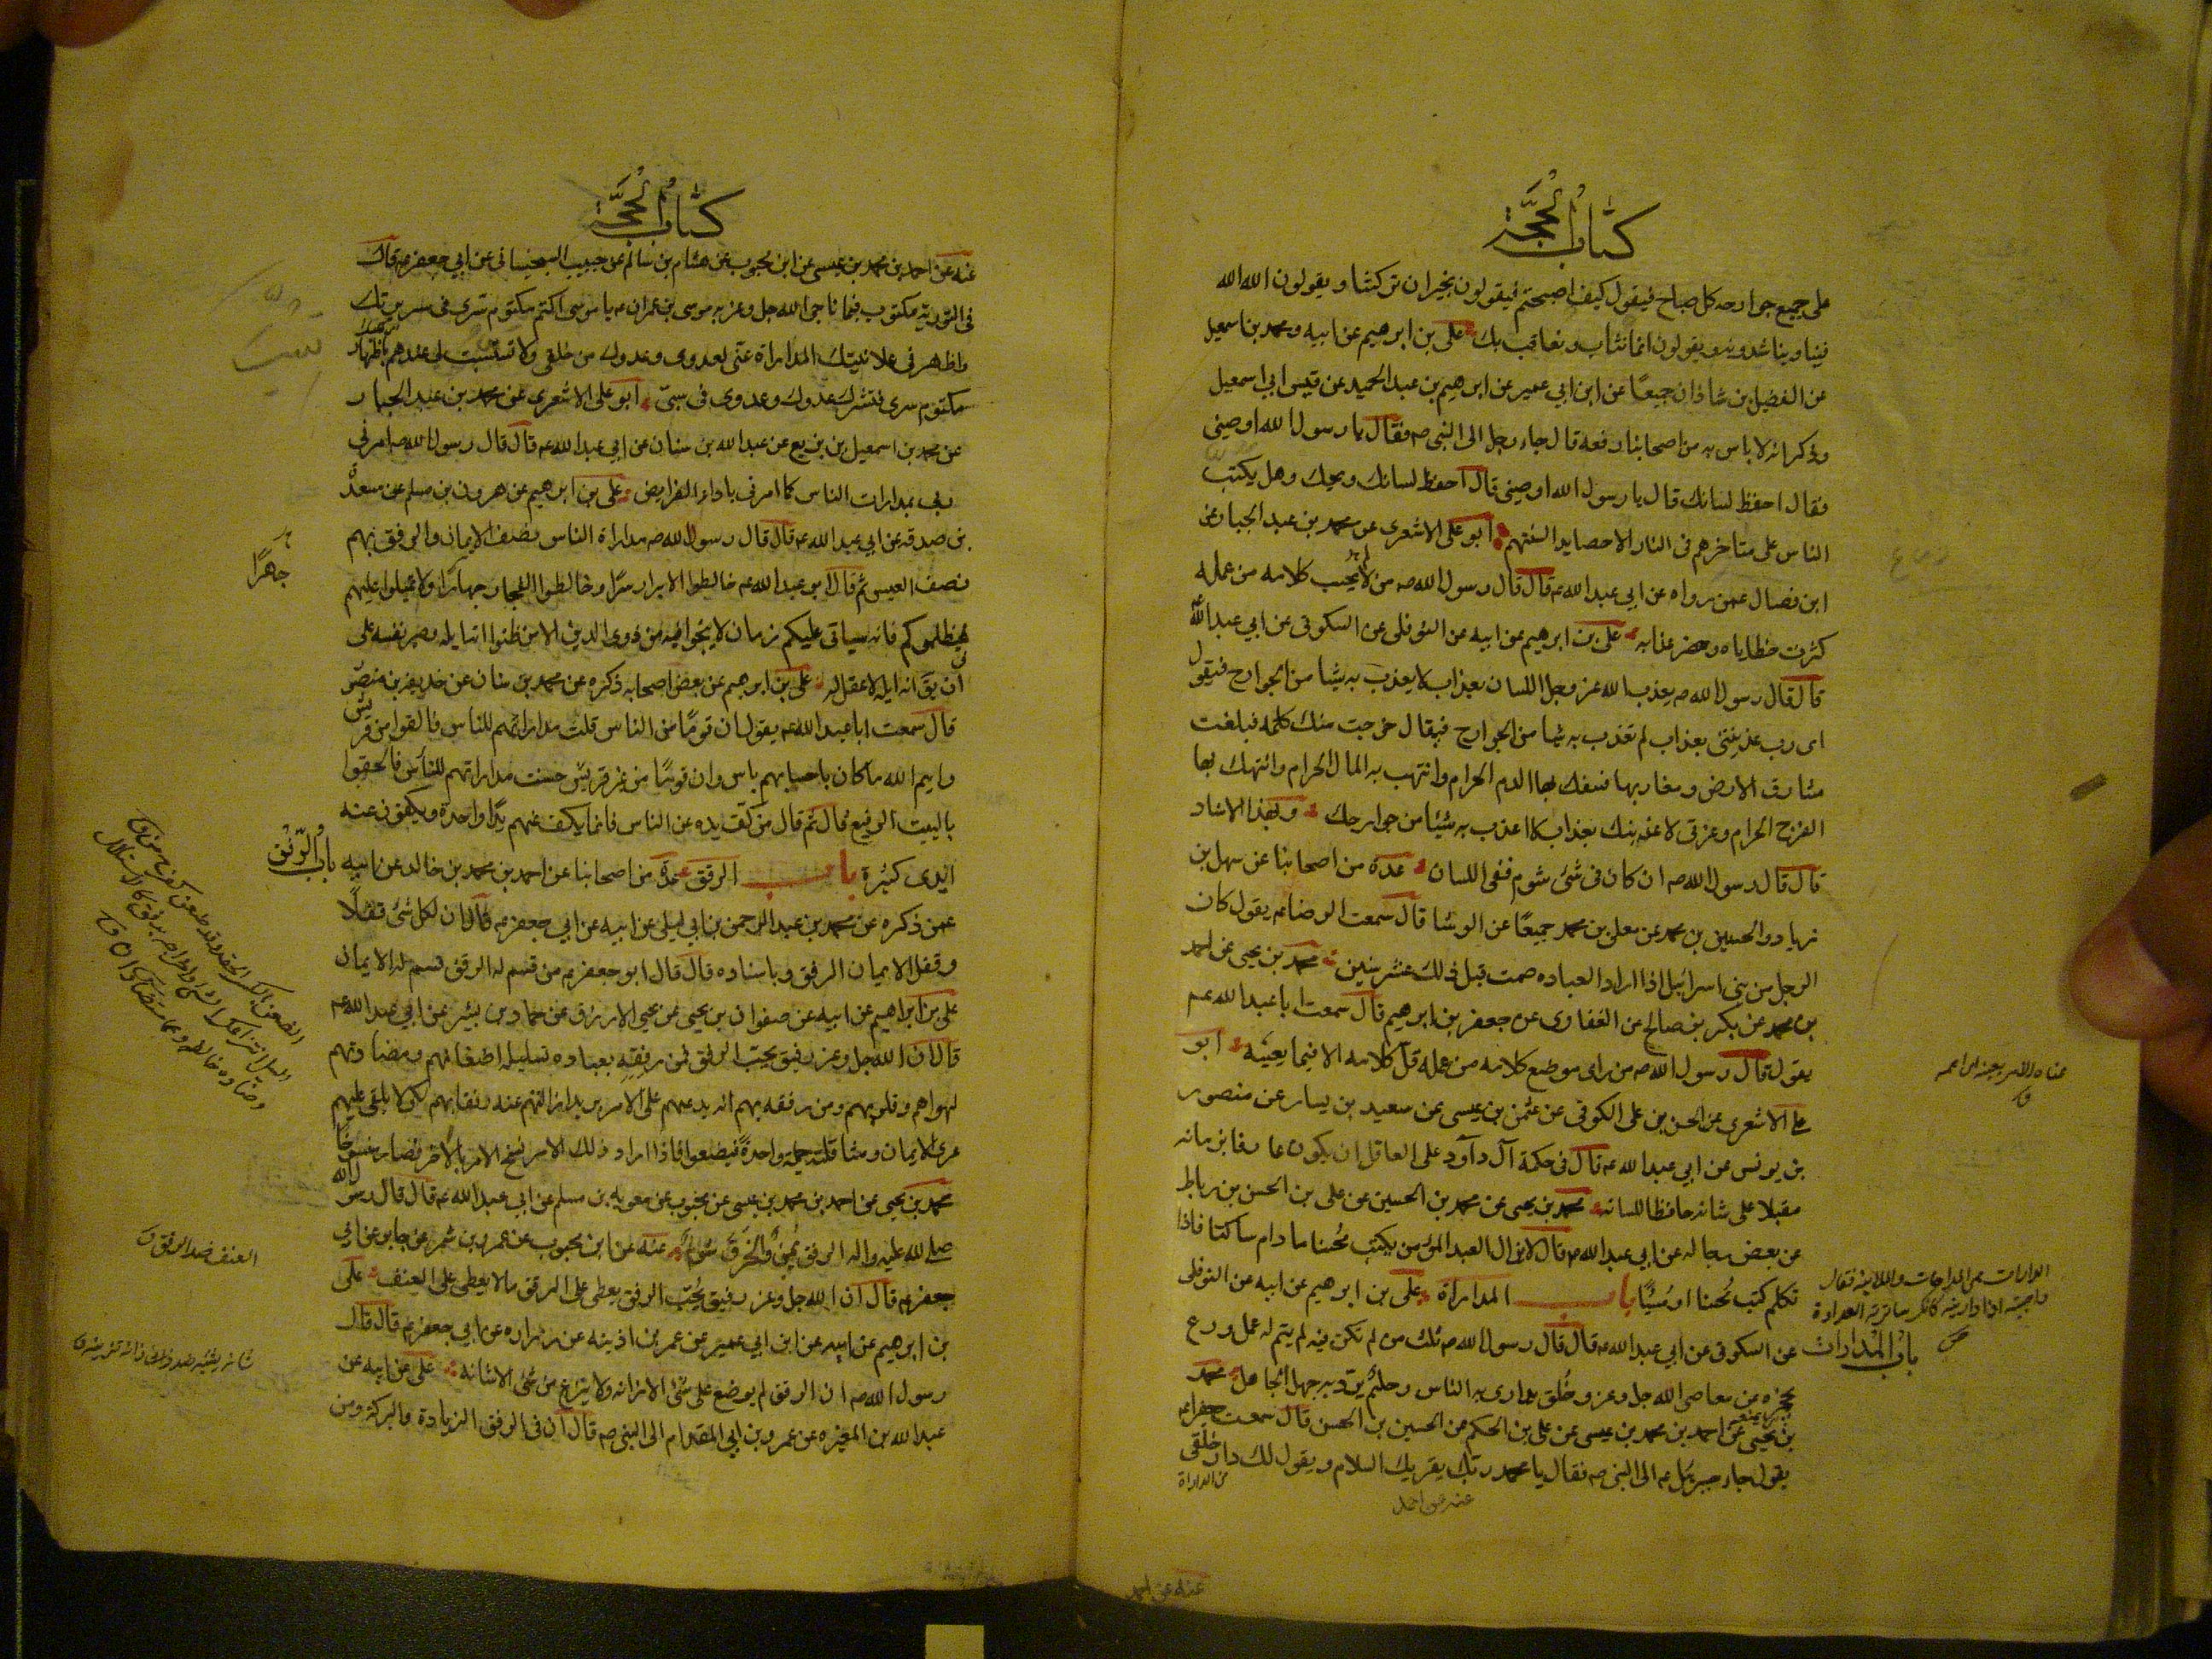 كتاب الحجة
على جميع جوارحه كل صباح فيقول كيف اصبحتم فيقولون بخير ان تركتنا ويقولون الله الله
فينا ويناشدونه ويقولون انما نثاب ونعاقب بك على بن ابرهيم عن ابيه ومحمد بن اسمعيل
عن الفضل بن شاذان جميعا عن ابن ابي عمير عن ابرهيم بن عبد الحميد عن قيس ابي اسمعيل
وذكر انه لا باس به من اصحابنا رفعه قال جاء رجل الى النبى صه فقال يا رسول الله اوصنى
فقال احفظ لسانك قال يا رسول الله اوصينى قال احفظ لسانك ويحك وهل يكتب
الناس على مناخرهم فى النار الا حصايد السنتهم ابو على الاشعرى عن محمد بن عبد الجبار عن
ابن فضال عمن رواه عن ابي عبد الله عه قال قال رسول الله صه من لم يحسب كلامه من عمله
كثرت خطاياه وحضر عذابه على بن ابرهيم عن ابيه عن النوفلى عن السكونى عن ابي عبد الله
قال قال رسول الله صه يعذب الله عز وجل اللسان بعذاب لا يعذب به شيئا من الجوارح فيقول
اى رب عذبتنى بعذاب لم تعذب به شيئا من الجوارح فيقال خرجت منك كلمة فبلغت
مشارق الارض ومغاربها فسفك بها الدم الحرام وانتهب به المال الحرام وانتهك بها
الفرج الحرام وعزتى لاعذبنك بعذاب لا اعذب به شيئا من جوارحك وبهذا الاسناد
قال قال رسول الله صه ان كان فى شئ شوم ففى اللسان عدة من اصحابنا عن سهل بن
زياد والحسين بن محمد عن معلى بن محمد جميعا عن الوشا قال سمعت الرضا عه يقول كان
الرجل من بنى اسرائيل اذا اراد العباده صمت قبل ذلك عشر سنين محمد بن يحيى عن احمد
بن محمد عن بكر بن صالح عن الغفارى عن جعفر بن ابرهيم قال سمعت ابا عبد الله عه
يقول قال رسول الله صه من راى موضع كلامه من عمله قل كلامه الا فيما يعينه ابو
على الاشعرى عن الحسن بن على الكوفى عن عثمن بن عيسى عن سعيد بن يسار عن منصور
بن يونس عن ابي عبد الله عه قال فى حكمة آل داود على العاقل ان يكون عارفا بزمانه
مقبلا على شانه حافظا للسانه محمد بن يحيى عن محمد بن الحسين عن على بن الحسن بن رباط
عن بعض رجاله عن ابي عبد الله عه قال لا يزال العبد المؤمن يكتب محسنا ما دام ساكتا فاذا
تكلم كتب محسنا او مسيئا باب المداراة على بن ابرهيم عن ابيه عن النوفلى
باب المدارات
عن السكونى عن ابي عبد الله عه قال قال رسول الله صه ثلث من لم تكن فيه لم يتم له عمل ورع
يحجزه عن معاصى الله جل وعز وخلق يدارى به الناس وحلم يرد به جهل الجاهل محمد
بن يحيى عن احمد بن محمد بن عيسى عن على بن الحكم عن الحسين بن الحسن قال سمعت جعفرا عه
يقول جاء جبرئيل عه الى النبى صه فقال يا محمد ربك يقريك السلام ويقول لك دار خلقى
عنه عن احمد
كتاب الحجة
عنه عن احمد بن محمد بن عيسى عن ابن محبوب عن هشام بن سالم عن حبيب السجستانى عن ابي جعفر عه قال
فى التورية مكتوب فيما ناجى الله جل وعز به موسى بن عمران عه يا موسى اكتم مكتوم سرى فى سريرتك
واظهر فى علانيتك المداراة عنى لعدوى وعدوك من خلقى ولا تستسب لى عندهم باظهار
مكتوم سرى فتشرك عدوك وعدوى فى سبى ابو على الاشعرى عن محمد بن عبد الجبار
عن محمد بن اسمعيل بن بزيع عن عبد الله بن سنان عن ابي عبد الله عه قال قال رسول الله صه امرنى
ربى بمدارات الناس كما امرنى باداء الفرايض على بن ابرهيم عن هرون بن مسلم عن مسعدة
بن صدقه عن ابي عبد الله عه قال قال رسول الله صه مداراة الناس نصف الايمان والرفق بهم
نصف العيش ثم قال ابو عبد الله عه خالطوا الابرار سرا وخالطوا الفجار جهارا ولا تميلوا عليهم
جهرا
فيظلموكم فانه سياتى عليكم زمان لا ينجوا فيه من ذوى الدين الا من ظنوا انه ابله وصبر نفسه على
ان يق انه ابله لا عقل له على بن ابرهيم عن بعض اصحابه ذكره عن محمد بن سنان عن حذيفه بن منصور
قال سمعت ابا عبد الله عه يقول ان قوما من الناس قلت مداراتهم للناس فالقوا من قريش
وايم الله ما كان باحسابهم باس وان قوما من غير قريش حسنت مداراتهم للناس فالحقوا
بالبيت الرفيع قال ثم قال من كف يده عن الناس فانما يكف عنهم يدا واحدة ويكفون عنه
ايدى كثيرة باب الرفق عدة من اصحابنا عن احمد بن محمد بن خالد عن ابيه
باب الرفق
عمن ذكره عن محمد بن عبد الرحمن بن ابي ليلى عن ابيه عن ابي جعفر عه قال ان لكل شئ قفلا
وقفل الايمان الرفق وباسناده قال قال ابو جعفر عه من قسم له الرفق قسم له الايمان
على بن ابراهيم عن ابيه عن صفوان بن يحيى عن يحيى الازرق عن حماد بن بشير عن ابي عبد الله عه
قال ان الله جل وعز رفيق يحب الرفق فمن رفقه بعباده تسليله اضغانهم ومضادتهم
لهواهم وقلوبهم ومن رفقه بهم انه يدعهم على الامر يريد ازالتهم عنه رفقا بهم لكيلا يلقى عليهم
عرى الايمان ومثاقلته جملة واحدة فيضعفوا فاذا اراد ذلك الامر نسخ الامر بالاخر فصار منسوخا
محمد بن يحيى عن احمد بن محمد بن عيسى عن ابن محبوب عن معويه بن وهب عن ابي عبد الله عه قال قال رسول الله
صلى الله عليه واله الرفق يمن والخرق شوم عنه عن ابن محبوب عن عمرو بن شمر عن جابر عن ابي
جعفر عه قال ان الله جل وعز رفيق يحب الرفق يعطى على الرفق ما لا يعطى على العنف على
العنف ضد الرفق
بن ابرهيم عن ابيه عن ابن ابي عمير عن عمر بن اذينه عن زراره عن ابي جعفر عه قال قال
رسول الله صه ان الرفق لم يوضع على شئ الا زانه ولا ينزع من شئ الا شانه على عن ابيه عن
عبد الله بن المغيره عن عمرو بن ابي المقدام الى النبى صه قال ان فى الرفق الزيادة والبركة ومن